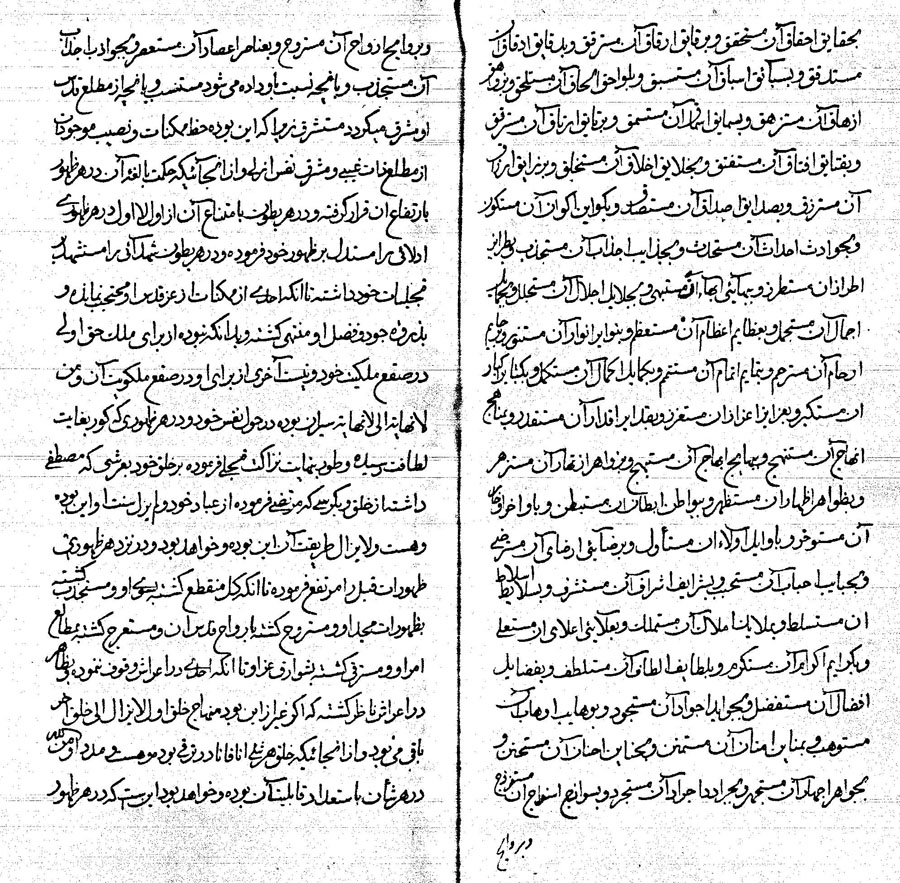 بحقایق احقاق آن مستحقق و برقایق ارقاق آن مسترقق و بدقایق ادقاق آن
مستدقق و بسبائق اسباق آن مستسبق و بلواحق الحاق آن مستلحق و بزواهق
ازهاق آن مستزهق و بسمایق اسماق آن مستمق و برتایق ارتاق آن مسترتق
و بفتایق افتاق آن مستفتق و بخلایق اخلاق آن مستخلق و برزایق ارزاق
آن مسترزق و بصدایق اصداق آن مستصدق و بکواین اکوان آن مستکون
و بحوادث احداث آن مستحدث و بجذایب اجذاب آن مستجذب و بطرایز
اطراز ان مستطرز و ببهائی ابهاء آن مستبهی و بجلایل اجلال آن مستجلل و بجمایل
اجمال آن مستجمل و بعظایم اعظام آن مستعظم و بنوایر انوار آن مستنور و برحایم
ارحام آن مسترحم و بتمایم اتمام آن مستتم و بکمایل اکمال آن مستکمل و بکبایر اکبار
ان مستکبر و بعزایز اعزاز ان مستعزز و بقدایر اقدار آن مستقدر و بناهج
انهاج آن مستنهج و ببهایج ابهاج آن مستبهج و بزواهر ازهار آن مستزهر
و بظواهر اظهار ان مستظهر و ببواطن ابطان ان مستبطن و باواخر اوخار
آن مستوخر و باوایل اولاء ان مستأول و برضائی ارضای آن مسترضی
و بحبایب احباب آن مستحبب و بشرایف اشراف آن مستشرف و بسلایط اسلاط
ان مستسلط و بملایک املاک آن مستملک و بعلائی اعلای ان مستعلی
و بکرایم اکرام آن مستکرم و بلطایف الطاف آن مستلطف و بفضایل
افضال آن مستفضل و بجواید اجواد آن مستجود و بوهایب اوهاب آن
مستوهب و بمناین امنان آن مستمنن و بحناین احنان آن مستحنن و
بجواهر اجهار آن مستجهر و بجراد اجراد آن مستجرد و بسوازج اسذاج آن مستزج
و بروایح
و بروایح ارواح آن مستروح و بعناصر اعصار آن مستعصر و بجواذب اجذاب
آن مستجذب و بانچه نسبت باو داده می شود مستنسب و بانچه از مطلع قدس
او مشرق میگردد مستشرق زیرا که این بوده حظ ممکنات و نصیب موجودات
از مطلع ذات غیبی و مشرق نفس ازلی و از انجائیکه حکمت بالغه آن در هر ظهور
بارتفاع ان قرار گرفته و در هر بطون بامتناع آن از اول لا اول در هر ظهوری
ادلائی را مستدل بر ظهور خود فرموده و در هر بطون شهدائی را مستشهد بر
تجلیات خود داشته تا انکه احدی از ممکنات از عز قدس او محتجب نمانده و
بذروه جود و فضل او منتهی گشته و بدانکه نبوده از برای ملک حق اولی
در صقع ملکیت خود و نیست آخری از برای او در صقع ملکوت آن و من
لا نهایة الی لا نهایة سیران بوده در حول نفس خود و در هر ظهوری که کور بغایت
لطافت رسیده و طور بنهایت نزاکت تجلی فرموده بر خلق خود بعرشی که مصطفی
داشته از خلق و بکرسی که مرتضی فرموده از عباد خود و لم یزل سنت او این بوده
و هست و لا یزال طریقت آن این بوده و خواهد بود و در نزد هر ظهوری
ظهورات قبل را مرتفع فرموده تا انکه کل منقطع گشته بسوی او و مستجذب گشته
بظهورات مجد او و مستروح گشته بارواح قدس ان و مستعرج گشته بمطالع
امر او و مسترقی گشته بشوارق عز او تا انکه احدی در اعراش وقوف ننموده و بظاهر
در اعراش ناظر گشته که اگر غیر از این بود منهاج خلق او لا یزال الی خلق آخر
باقی می بود و از انجائیکه خلق هر شیء انا فانا در ترقی بوده و هست و مدد او من الله
در هر شأن باستعداد قابلیت آن بوده و خواهد بود این است که در هر ظهور